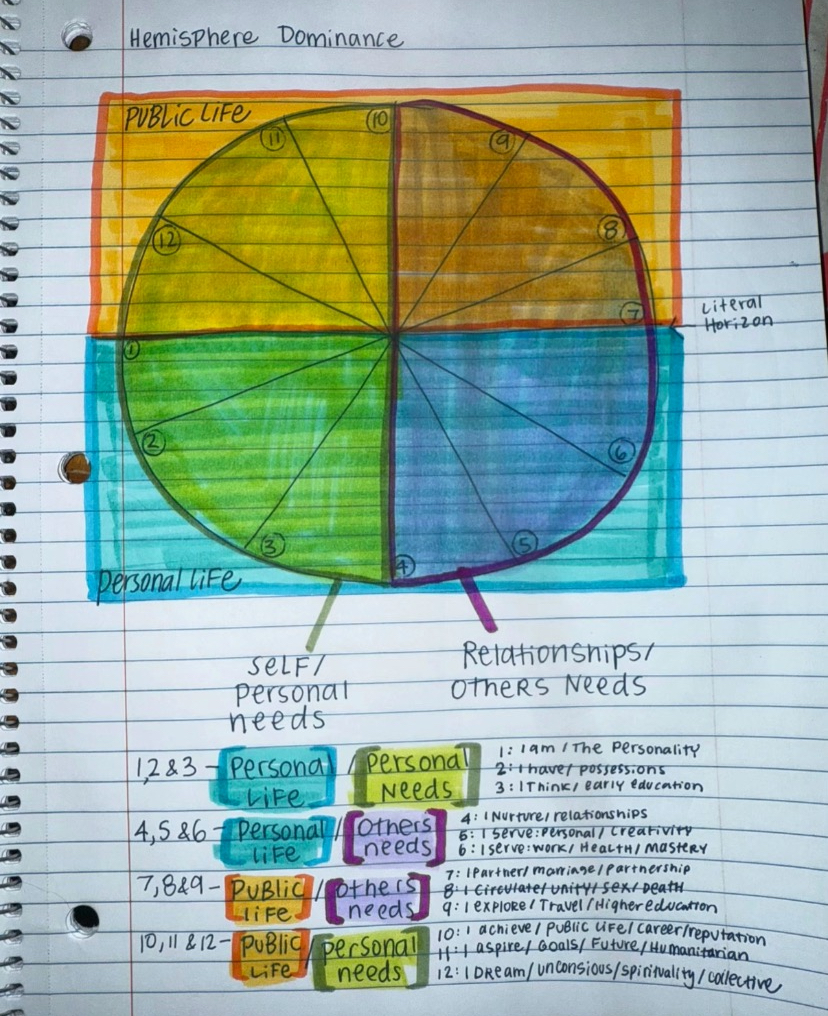 Hemisphere Dominance
PUBLIC LIFE
10
11
9
12
8
7
Literal
Horizon
1
2
6
3
5
4
Personal LIFE
SELF/
Personal
needs
Relationships/
OTHERS NEEDS
1,2 & 3 - [Personal LIFE] / [Personal Needs]
1: I am / The Personality
2: I have/ possessions
3: I Think/ early education
4,5 & 6 - [Personal LIFE] / [Others needs]
4: I Nurture/ relationships
5: I serve: Personal/ Creativity
6: I serve: work/ Health/ Mastery
7,8 & 9 - [Public LIFE] / [Others needs]
7: I Partner/ marriage/ Partnership
8: I circulate/ unity/ sex/ Death
9: I explore/ Travel/ Higher education
10,11 & 12 - [Public LIFE] / [personal needs]
10: I achieve/ Public Life/ career/ reputation
11: I aspire/ Goals/ Future/ Humanitarian
12: I Dream/ unconsious/ spirituality/ collective